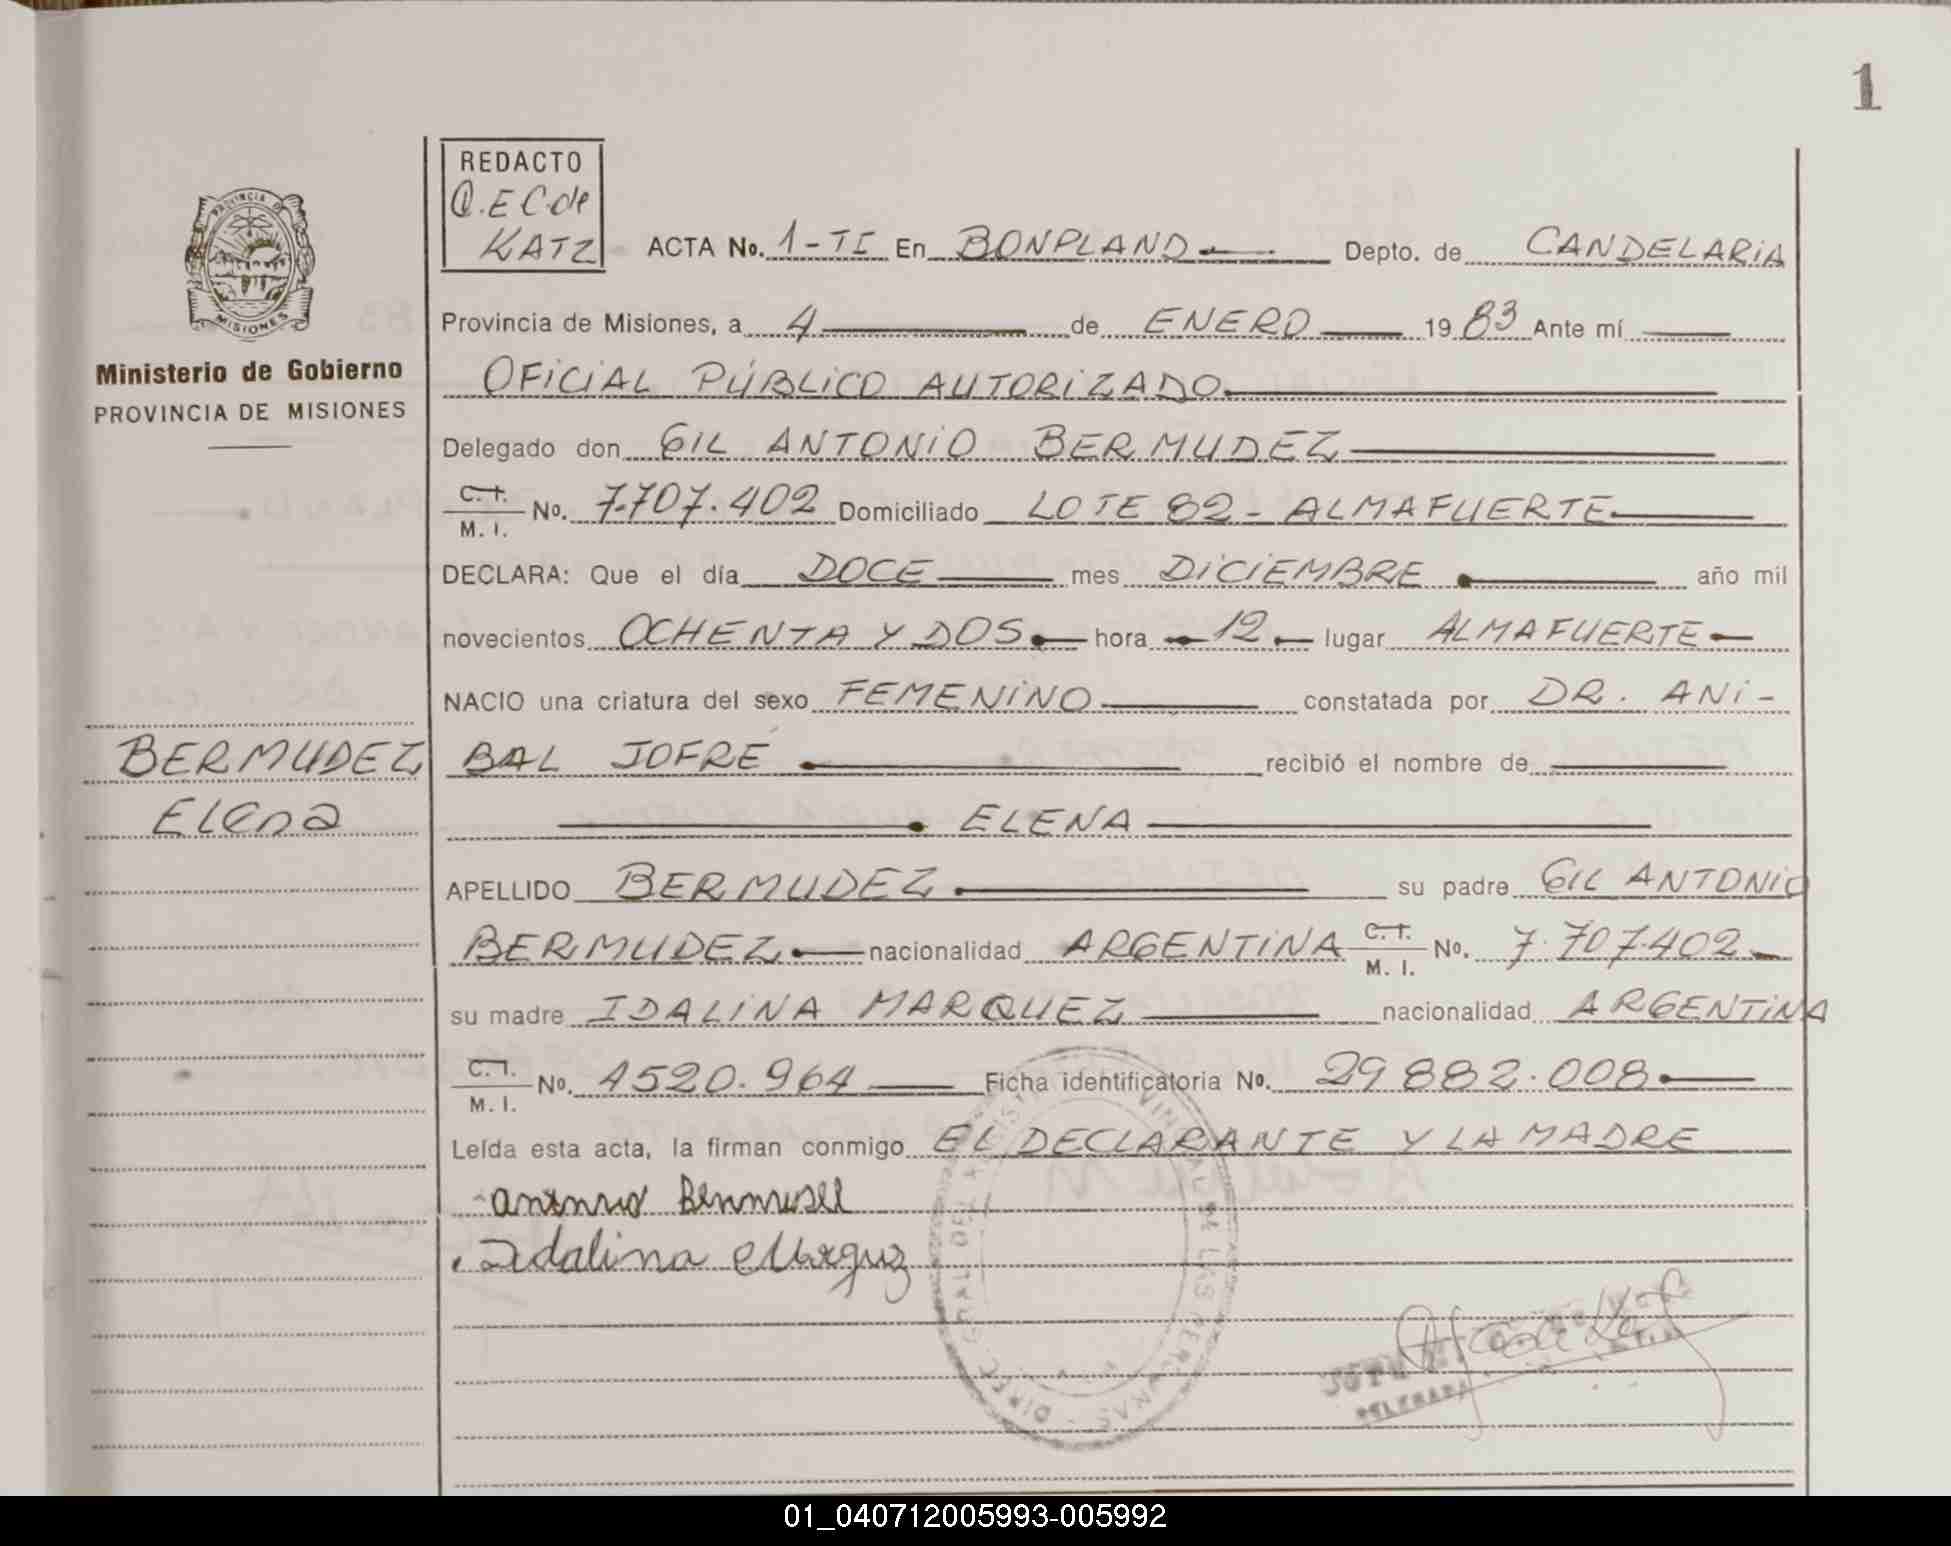 1
REDACTO
Q.E.C.de
KATZ
PROVINCIA DE
MISIONES
ACTA No. 1-TI En BONPLAND Depto. de CANDELARIA
Provincia de Misiones, a 4 de ENERO 19 83 Ante mí
Ministerio de Gobierno
PROVINCIA DE MISIONES
OFICIAL PÚBLICO AUTORIZADO
Delegado don GIL ANTONIO BERMUDEZ
C.I. M.I. No. 7.707.402 Domiciliado LOTE 82 - ALMAFUERTE
DECLARA: Que el día DOCE mes DICIEMBRE año mil
novecientos OCHENTA Y DOS hora 12 lugar ALMAFUERTE
NACIO una criatura del sexo FEMENINO constatada por DR. ANI-
BAL JOFRE recibió el nombre de
ELENA
BERMUDEZ
Elena
APELLIDO BERMUDEZ su padre GIL ANTONIO
BERMUDEZ nacionalidad ARGENTINA C.I. M.I. No. 7.707.402
su madre IDALINA MARQUEZ nacionalidad ARGENTINA
C.I. M.I. No. 1520.964 Ficha identificatoria No. 29 882.008
Leída esta acta, la firman conmigo EL DECLARANTE Y LA MADRE
Idalina
01_040712005993-005992